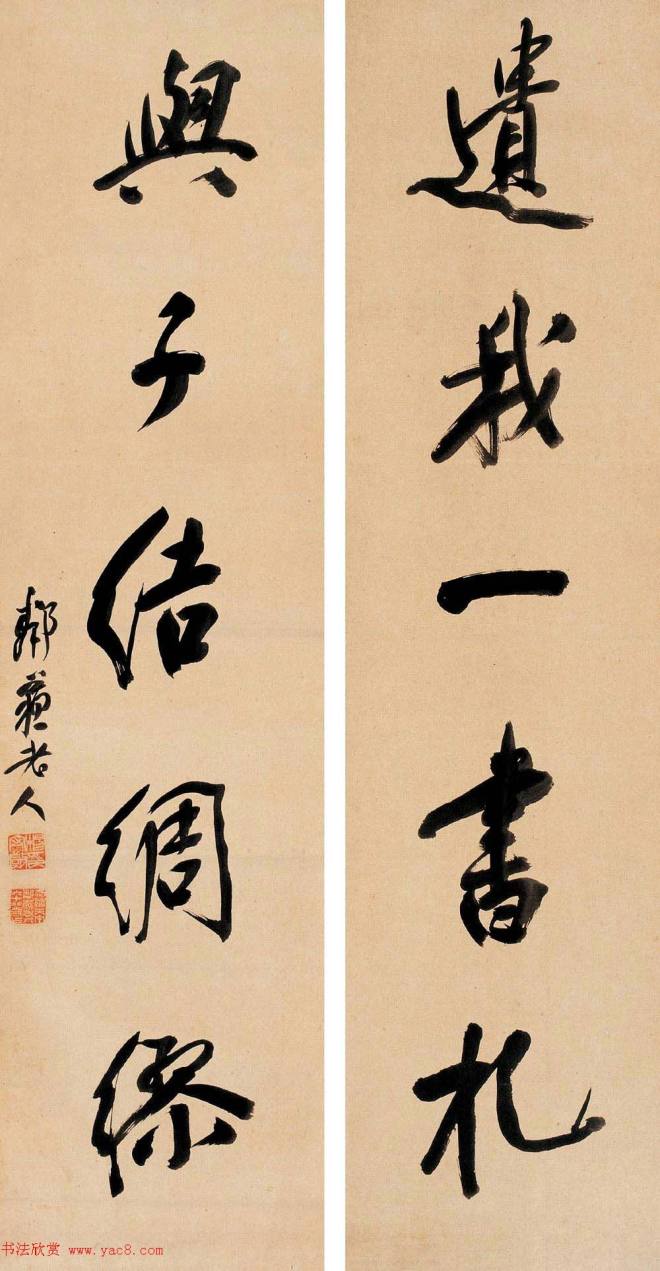 遺我一書札
與子結綢繆
鄰蘇老人
书法欣赏 www.yac8.com